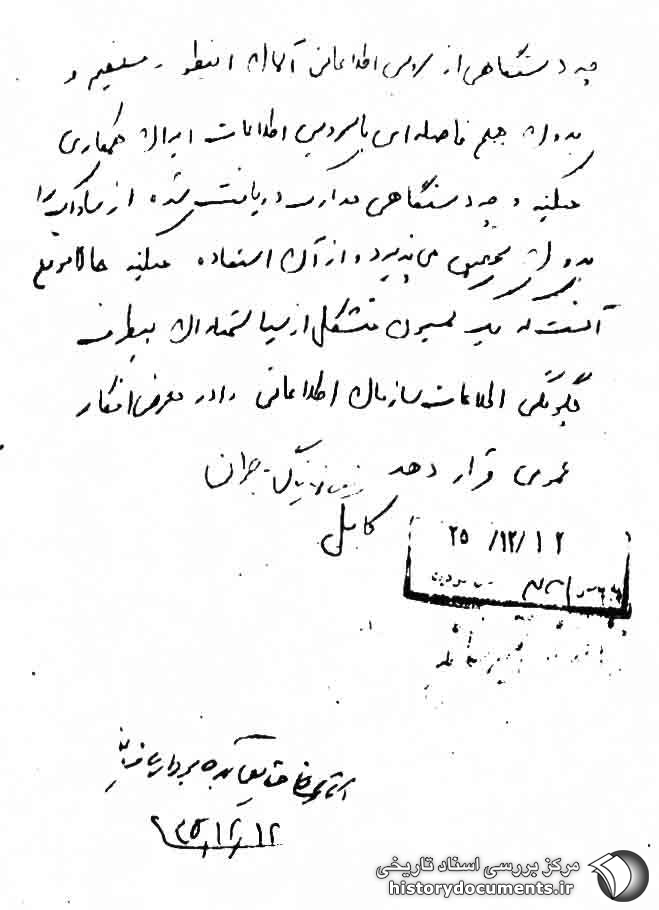 چه دستگاهی از سرویس اطلاعاتی آلمان اینطور مستقیم و
بدون هیچ فاصله‌ای با سرویس اطلاعات ایران همکاری
میکند و چه دستگاهی مدارک دریافت شده از ساواک را
بدون می‌پذیرد و از آن استفاده میکند حالا موقع
آنست که یک کمیسیون متشکل از سیاستمداران بیطرف
چگونگی اطلاعات سازمان اطلاعاتی را در معرض افکار
عمومی قرار دهد
کابلی
۲۵ /۱۲/ ۱۲
۲۵/۱۲/۱۲
مرکز بررسی اسناد تاریخی
historydocuments.ir